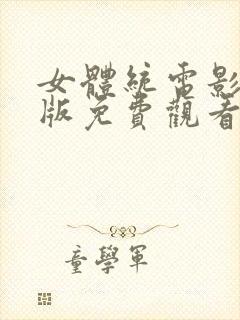 女體統電影
版免費觀看
童學軍